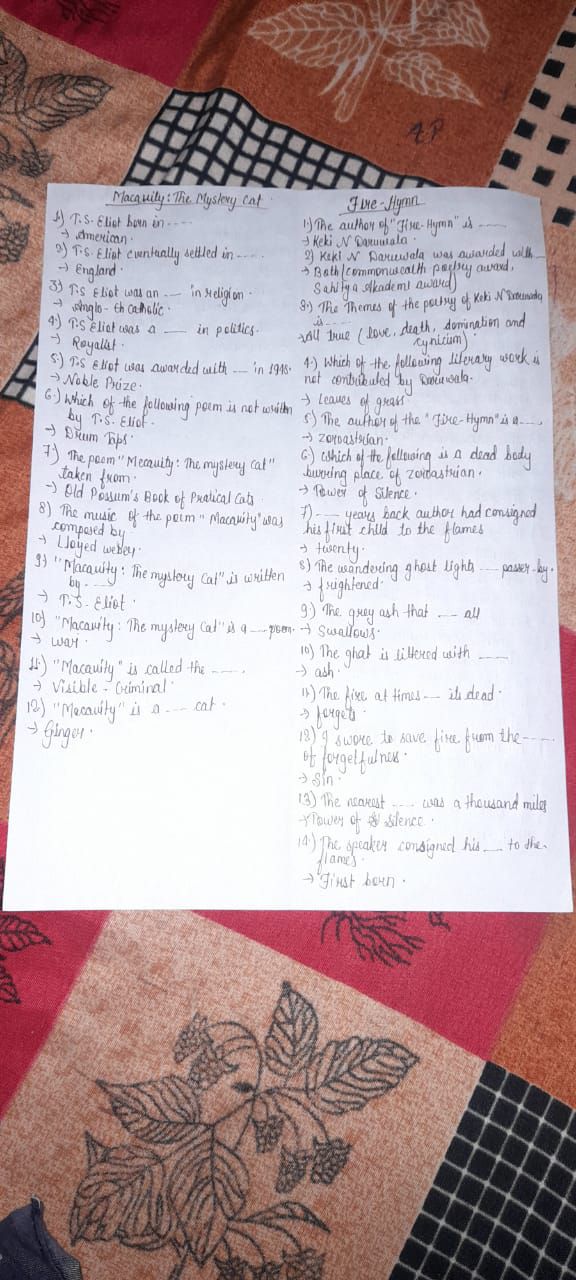 Macavity: The Mystery Cat.
1) T.S. Eliot born in ----
→ American.
2) T.S. Eliot eventually settled in ----.
→ England.
3) T.S Eliot was an --- in religion.
→ Anglo- Eh Catholic.
4) T.S Eliot was a --- in politics.
→ Royalist.
5) T.S Eliot was awarded with --- in 1948.
→ Noble Prize.
6) Which of the following poem is not written
by T.S. Eliot.
→ Drum Taps
7) The poem "Mecavity: The mystery Cat"
taken from.
→ Old Possum's Book of Pratical Cats.
8) The music of the poem "Macavity" was
composed by
→ Lloyed weber.
9) "Macavity: The mystery Cat" is written
by ----
→ T.S- Eliot.
10) "Macavity: The mystery Cat" is a --- poem.
→ war.
11) "Macavity" is called the ----.
→ Visible - Criminal
12) "Macavity" is a --- cat.
→ Ginger.
Fire-Hymn
1) The author of "Fire-Hymn" is ----
→ Keki N Daruwala.
2) Keki N Daruwala was awarded with --
→ Both (commonwealth poetry award,
Sahitya Akademi award)
3) The Themes of the poetry of Keki N Daruwala
is ----
→ All true (love, death, domination and
cynicism).
4) Which of the following literary work is
not contributed by Daruwala.
→ Leaves of grass.
5) The author of the "Fire-Hymn" is a ---.
→ Zoroastrian.
6) Which of the following is a dead body
burring place of zoroastrian.
→ Power of Silence.
7) --- years back author had consigned
his first child to the flames
→ twenty.
8) The wandering ghost lights --- passer-by.
→ frightened.
9) The grey ash that --- all
→ Swallows.
10) The ghat is littered with ----
→ ash.
11) The fire at times --- its dead.
→ forgets
12) I swore to save fire from the ----
of forgetfulness.
→ Sin.
13) The nearest ---- was a thousand miles
→ Power of Silence.
14) The speaker consigned his --- to the
flames.
→ First born.